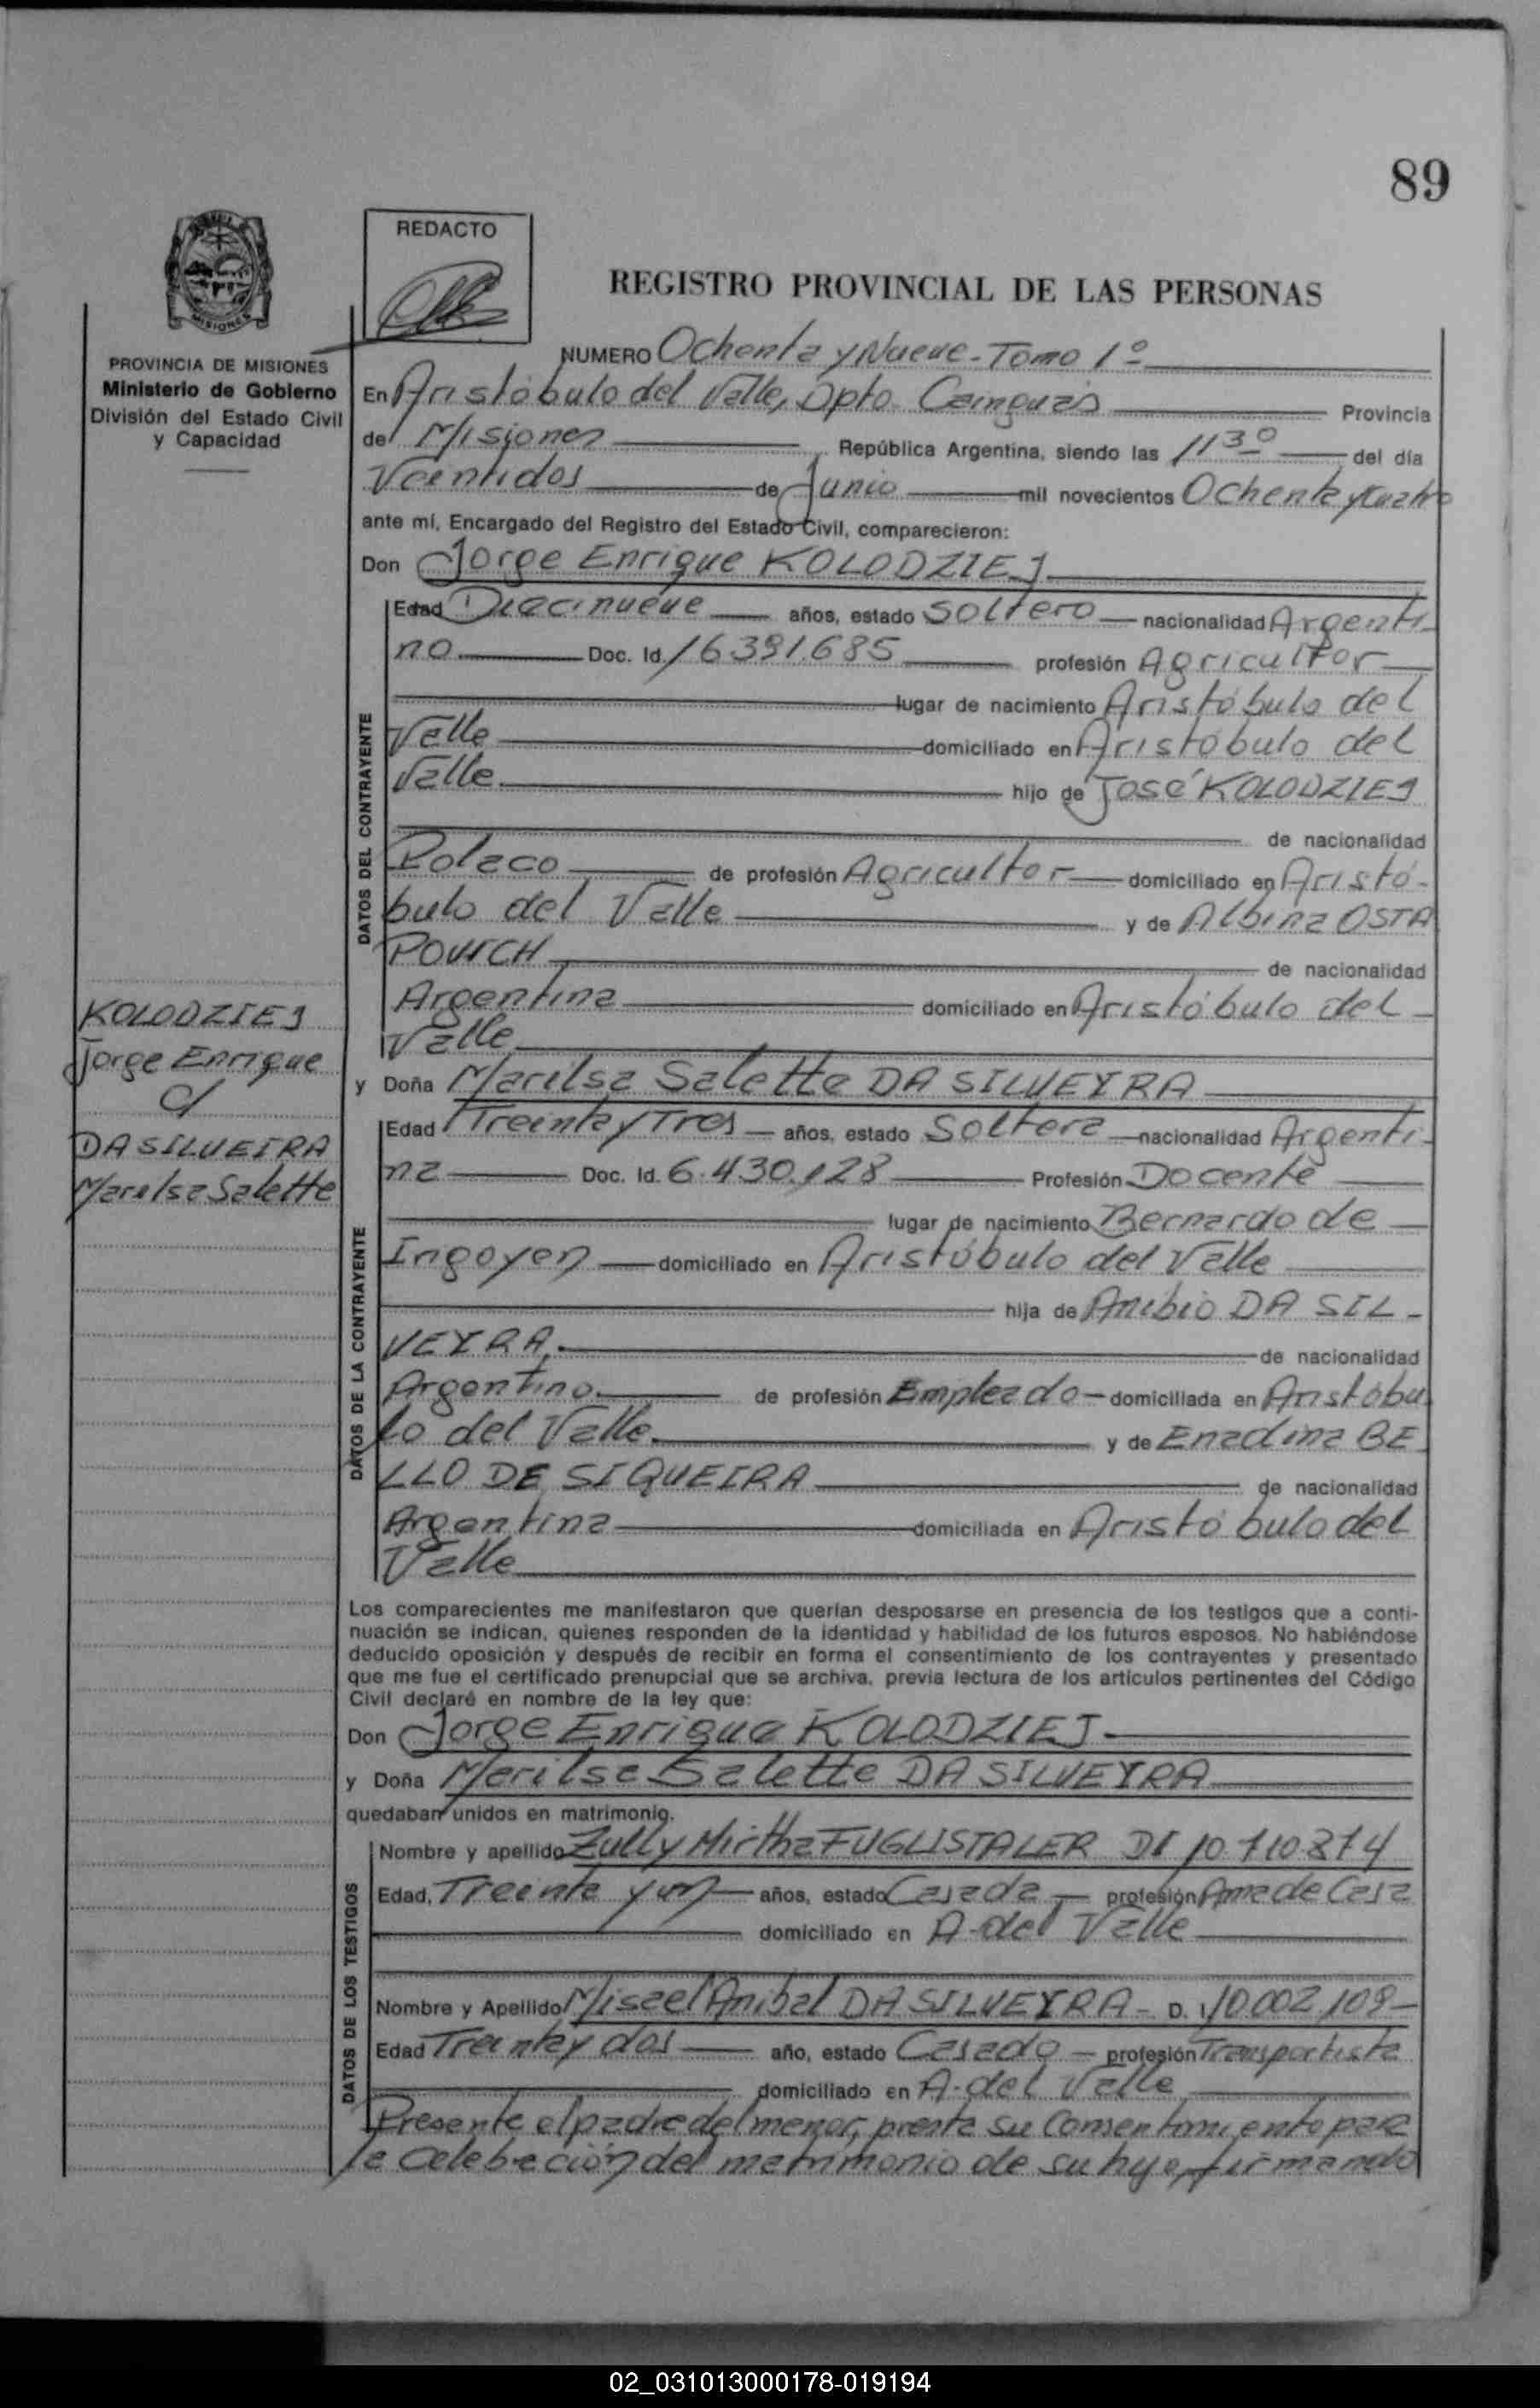 89
REDACTO
REGISTRO PROVINCIAL DE LAS PERSONAS
MISIONES
PROVINCIA DE MISIONES
Ministerio de Gobierno
División del Estado Civil
y Capacidad
NUMERO Ochenta y Nueve - Tomo 1º
En Aristóbulo del Valle, Dpto. Cainguás Provincia
de Misiones República Argentina, siendo las 11 30 del día
Veintidos de Junio mil novecientos Ochenta y Cuatro
ante mí, Encargado del Registro del Estado Civil, comparecieron:
Don Jorge Enrique KOLODZIEJ
Edad Diecinueve años, estado Soltero nacionalidad Argenti-
no Doc. Id. 16391.685 profesión Agricultor
lugar de nacimiento Aristóbulo del
Valle domiciliado en Aristóbulo del
Valle. hijo de José KOLODZIEJ
de nacionalidad
Polaco de profesión Agricultor domiciliado en Aristó-
bulo del Valle y de Albina OSTA
POVICH de nacionalidad
Argentina domiciliado en Aristóbulo del
Valle
DATOS DEL CONTRAYENTE
KOLODZIEJ
Jorge Enrique
c/
DA SILVEIRA
Marilsa Salette
y Doña Marilsa Salette DA SILVEYRA
Edad Treinta y Tres años, estado Soltera nacionalidad Argenti-
na Doc. Id. 6.430.128 Profesión Docente
lugar de nacimiento Bernardo de
Irigoyen domiciliado en Aristóbulo del Valle
hija de Anibio DA SIL-
VEYRA. de nacionalidad
Argentino. de profesión Empleado - domiciliada en Aristóbu
lo del Valle. y de Enadina BE
LLO DE SIQUEIRA de nacionalidad
Argentina domiciliada en Aristóbulo del
Valle
DATOS DE LA CONTRAYENTE
Los comparecientes me manifestaron que querían desposarse en presencia de los testigos que a conti-
nuación se indican, quienes responden de la identidad y habilidad de los futuros esposos. No habiéndose
deducido oposición y después de recibir en forma el consentimiento de los contrayentes y presentado
que me fue el certificado prenupcial que se archiva, previa lectura de los artículos pertinentes del Código
Civil declaré en nombre de la ley que:
Don Jorge Enrique KOLODZIEJ
y Doña Marilsa Salette DA SILVEYRA
quedaban unidos en matrimonio.
Nombre y apellido Zully Mirtha FUGLISTALER DI 10.710.874
Edad, Treinta y un años, estado Casada profesión Ama de Casa
domiciliado en A. del Valle
Nombre y Apellido Misael Anibal DA SILVEYRA - D. I. 10.002.109-
Edad Treinta y dos año, estado Casado - profesión Transportista
domiciliado en A. del Valle
DATOS DE LOS TESTIGOS
Presente el padre del menor, presta su Consentimiento para
la Celebración del matrimonio de su hijo, firmando
02_031013000178-019194